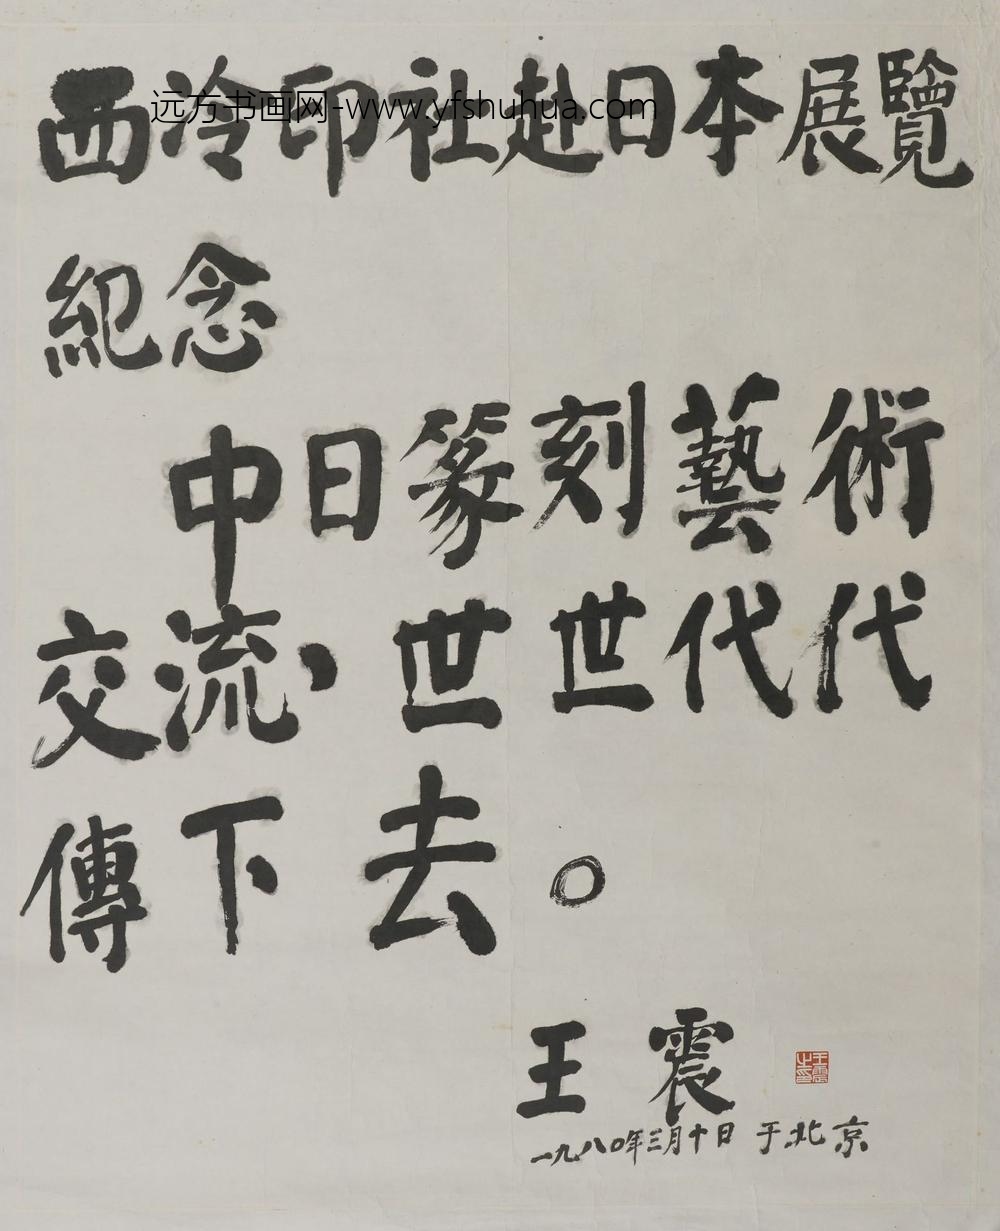 西冷印社赴日本展覽
远方书画网-www.yfshuhua.com
紀念
中日篆刻藝術
交流、世世代代
傳下去。
王震
王震之印
一九八〇年三月十日 于北京